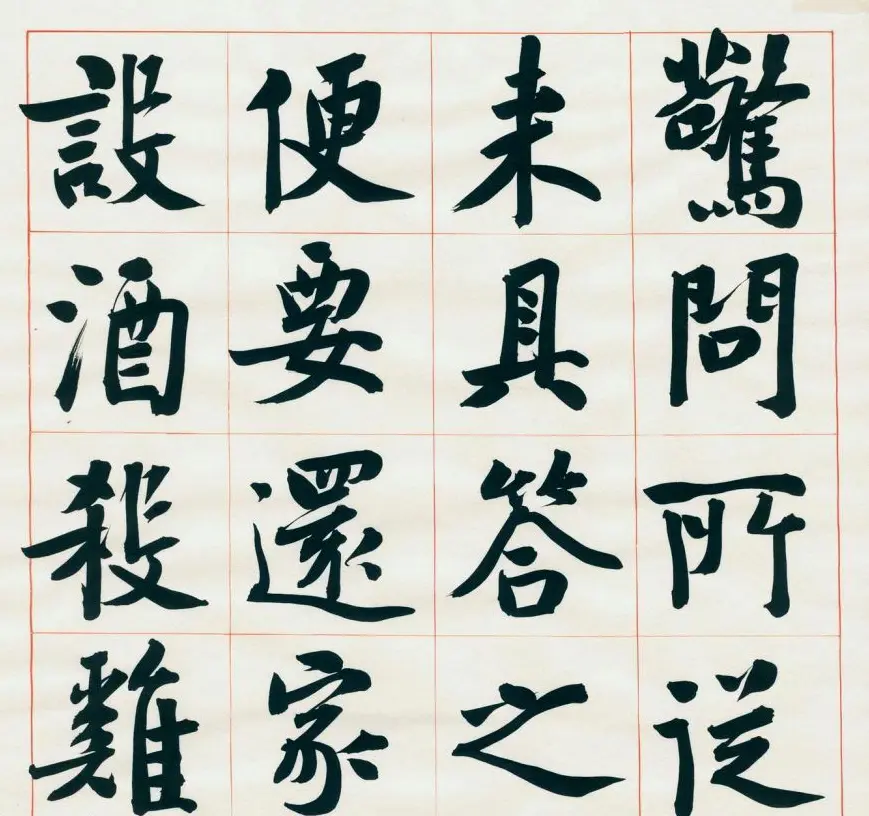 驚問所從
来具答之
便要還家
設酒殺雞